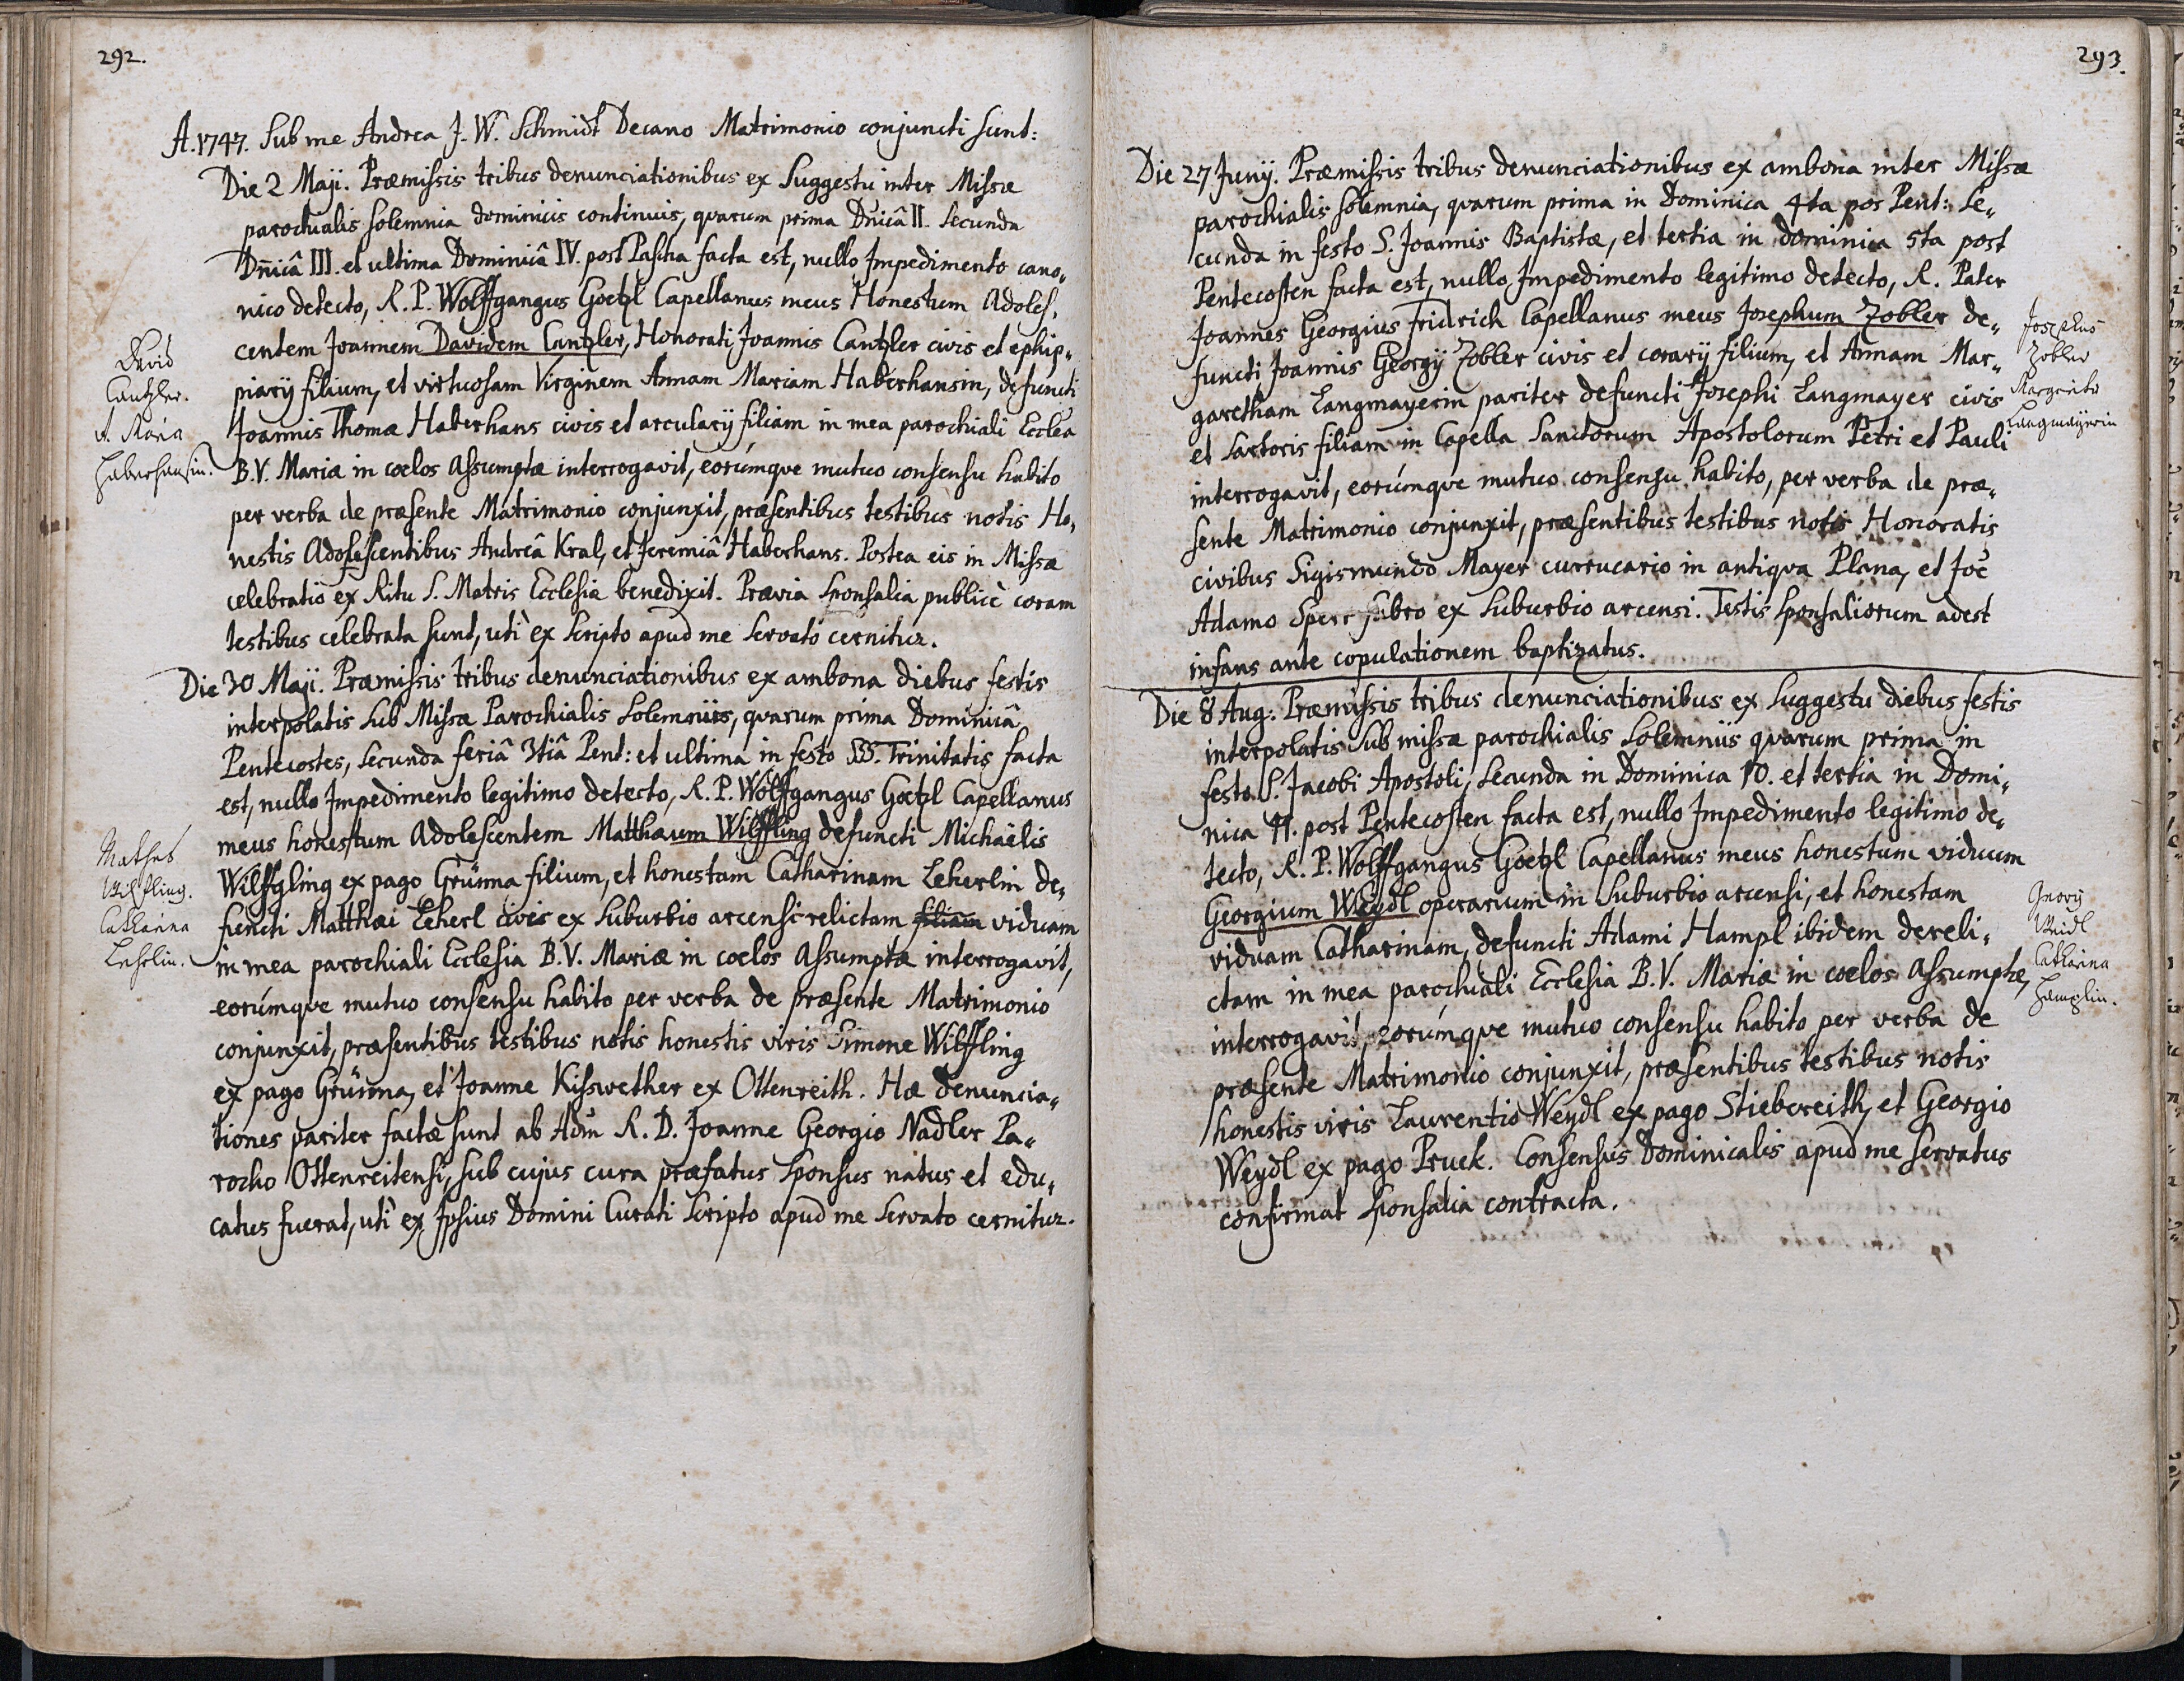 292.
A. 1747. Sub me Andrea J. W. Schmidt Decano Matrimonio conjuncti sunt:
Die 2 Maji. Præmissis tribus denunciationibus ex Suggestu inter Missæ
parochialis solemnia dominicis continuis, quarum prima Dnicâ II. secunda
Dnicâ III. et ultima Dominicâ IV. post Pascha facta est, nullo Impedimento cano„
nico detecto, R. P. Wolffgangus Goetzl Capellanus meus Honestum Adoles„
centem Joannem Davidem Cantzler, Honorati Joannis Cantzler civis et ephip„
piarij filium, et virtuosam Virginem Annam Mariam Haberhansin, defuncti
Joannis Thomæ Haberhans civis et arcularij filiam in mea parochiali Eccleâ
B. V. Mariæ in coelos Assumptæ interrogavit, eorúmque mutuo consensu habito
per verba de præsente Matrimonio conjunxit, præsentibus testibus notis Ho„
nestis Adolescentibus Andreâ Kral, et Jeremiâ Haberhans. Postea eis in Missæ
celebratio ex Ritu S. Matris Ecclesiæ benedixit. Prævia Sponsalia publicè coram
testibus celebrata sunt, utì ex scripto apud me servato cernitur.
David
Cantzler.
A. Maria
Haberhansin.
Die 30 Maji. Præmissis tribus denunciationibus ex ambona diebus festis
interpolatis sub Missæ Parochialis solemniis, quarum prima Dominicâ
Pentecostes, secunda feriâ 3tiâ Pent: et ultima in festo SS. Trinitatis facta
est, nullo Impedimento legitimo detecto, R. P. Wolffgangus Goetzl Capellanus
meus honestum Adolescentem Matthæum Wilffling defuncti Michaëlis
Wilffgling ex pago Grünna filium, et honestam Catharinam Leherlin de„
functi Matthæi Leherl civis ex suburbio arcensi relictam filiam viduam
in mea parochiali Ecclesia B. V. Mariæ in coelos Assumptæ interrogavit,
eorúmque mutuo consensu habito per verba de præsente Matrimonio
conjunxit, præsentibus testibus notis honestis viris Simone Wilffling
ex pago Grünna, et Joanne Kisswether ex Ottenreith. Hæ denuncia„
tiones pariter factæ sunt ab Adm R. D. Joanne Georgio Nadler Pa„
rocho Ottenreitensi, sub cujus cura præfatus Sponsus natus et edu„
catus fuerat, utì ex Ipsius Domini Curati scripto apud me servato cernitur.
Mathes
Wilfling.
Catharina
Leherlin.
293.
Die 27 Junij. Præmissis tribus denunciationibus ex ambona inter Missæ
parochialis solemnia, quarum prima in Dominica 4ta pos Pent: se„
cunda in festo S. Joannis Baptistæ, et tertia in dominica 5ta post
Pentecosten facta est, nullo Impedimento legitimo detecto, R. Pater
Joannes Georgius Fridrich Capellanus meus Josephum Zobler de„
functi Joannis Georgij Zobler civis et corarij filium, et Annam Mar„
garetham Langmayerin pariter defuncti Josephi Langmayer civis
et sartoris filiam in Capella Sanctorum Apostolorum Petri et Pauli
interrogavit, eorúmque mutuo consensu habito, per verba de præ„
sente Matrimonio conjunxit, præsentibus testibus notis Honoratis
civibus Sigismundo Mayer currucario in antiqva Plana, et Joe
Adamo Sperr fabro ex suburbio arcensi. Testis sponsaliorum adest
infans ante copulationem baptizatus.
Josephus
Zobler
Margreta
Langmayerin
Die 8 Aug: Præmissis tribus denunciationibus ex suggestu diebus festis
interpolatis sub missæ parochialis solemniis quarum prima in
festo S. Jacobi Apostoli, secunda in Dominica 10. et tertia in Domi„
nica 11. post Pentecosten facta est, nullo Impedimento legitimo de„
tecto, R. P. Wolffgangus Goetzl Capellanus meus honestum viduum
Georgium Weydl operarium in suburbio arcensi, et honestam
viduam Catharinam, defuncti Adami Hampl ibidem dereli„
ctam in mea parochiali Ecclesia B. V. Mariæ in coelos Assumptæ,
interrogavit, eorúmque mutuo consensu habito per verba de
præsente Matrimonio conjunxit, præsentibus testibus notis
honestis viris Laurentio Weydl ex pago Stiebereith, et Georgio
Weydl ex pago Pruck. Consensus Dominicalis apud me servatus
confirmat Sponsalia contracta.
Georg
Weidl
Catharina
Hamplin.